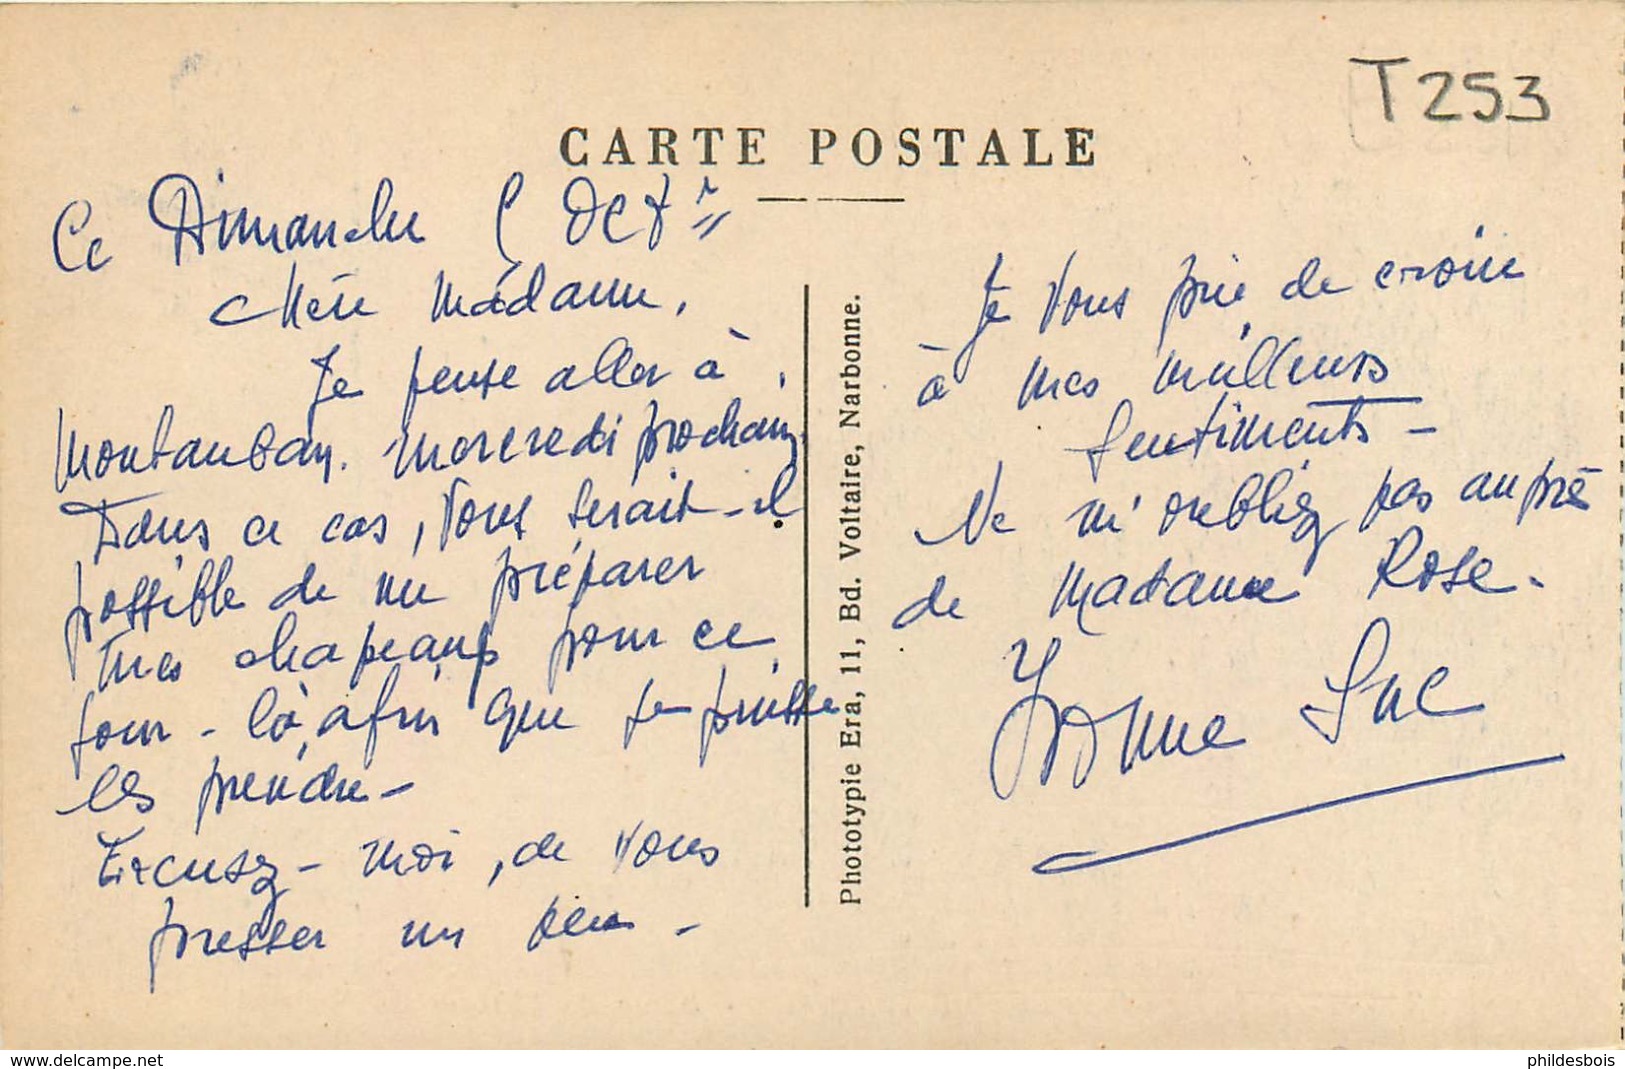 T253
CARTE POSTALE
Ce Dimanche Octre
Chère Madame,
Je pense aller à
Montauban mercredi prochain.
Dans ce cas, vous serait-il
possible de me préparer
mes chapeaux pour ce
jour-là, afin que je puisse
les prendre-
Excusez-moi, de vous
presser un peu-
Je vous prie de croire
à mes meilleurs
sentiments-
Ne m'oubliez pas auprès
de Madame Rose.
Yvonne Luc
Phototypie Era, 11, Bd. Voltaire, Narbonne.
www.delcampe.net
phildesbois